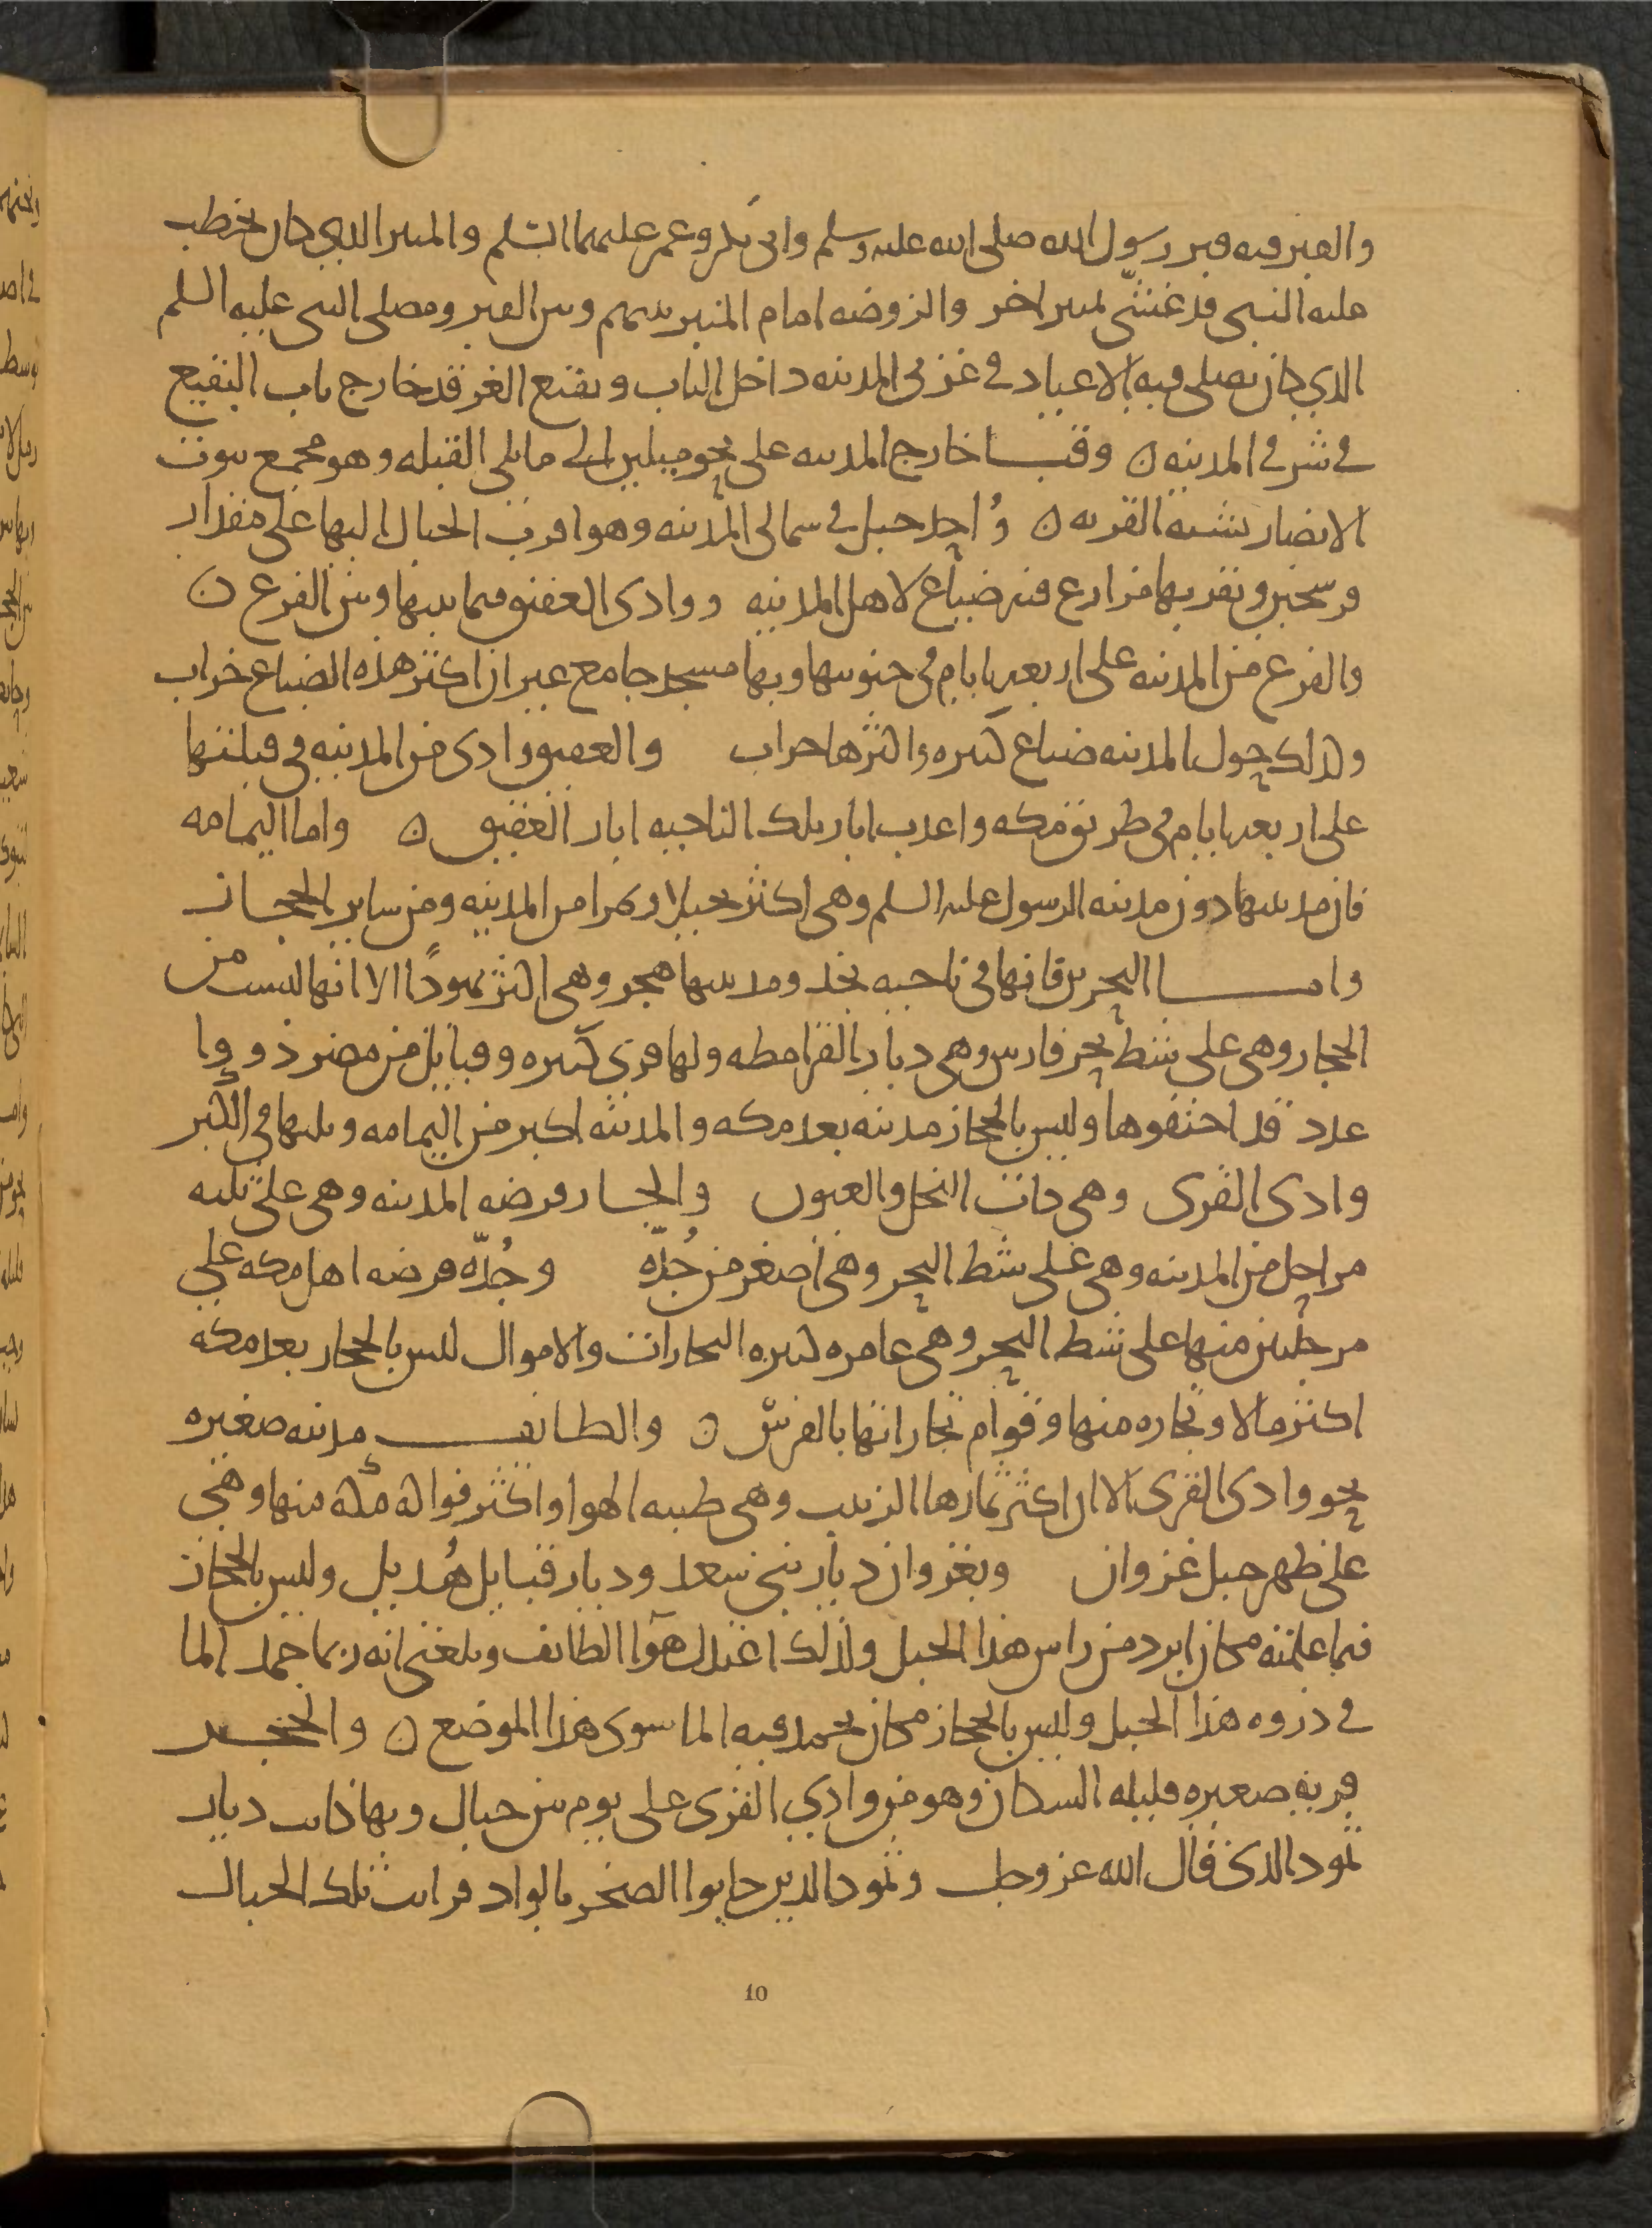 والقبر فيه قبر رسول الله صلى الله عليه وسلم وابى بكر وعمر عليهما السلم والمنبر الذى كان يخطب
عليه النبى قد غشّى لمنبر اخر والروضه امام المنبر بينهم وبين القبر ومصلى النبى عليه السلم
الذي كان يصلى فيه الاعياد فى غربى المدينه داخل الباب وبقيع الغرقد خارج باب البقيع
فى شرقى المدينه ن وقبا خارج المدينه على نحو ميلين الى ما يلى القبله وهو مجمع بيوت
الانصار يشبه القريه ن وأحد جبل فى شمالى المدينه وهو اقرب الجبال اليها على مقدار
فرسخين وبقربها مزارع فيه ضياع لاهل المدينه ووادى العقيق فيما بينها وبين الفرع ن
والفرع من المدينه على اربعه ايام فى جنوبيها وبها مسجد جامع غير ان اكثر هذه الضياع خراب
وكذلك حول المدينه ضياع كثيره واكثرها خراب والعقيق وادى من المدينه فى قبلتها
على اربعه ايام فى طريق مكه واعذب ابار تلك الناحيه ابار العقيق ن واما اليمامه
فان مدينتها دون مدينه الرسول عليه السلم وهى اكثر نخيلا وتمرا من المدينه ومن ساير الحجاز
واما البحرين فانها فى ناحيه نجد ومدينتها هجر وهى اكثر تمورًا الا انها ليست من
الحجاز وهى على شط بحر فارس وهى ديار القرامطه ولها قرى كثيره وقبايل من مضر ذووا
عدد قد احتفوها وليس بالحجاز مدينه بعد مكه والمدينه اكبر من اليمامه ويليها فى الكبر
وادى القرى وهى ذات النخل والعيون والجار فرضه المدينه وهى على ثلثه
مراحل من المدينه وهى على شط البحر وهى اصغر من جُدّه وجُدّه فرضه اهل مكه على
مرحلتين منها على شط البحر وهى عامره كثيره التجارات والاموال ليس بالحجاز بعد مكه
اكثر مالا وتجاره منها وقوام تجاراتها بالفرس ن والطايف مدينه صغيره
نحو وادى القرى الا ان اكثر ثمارها الزبيب وهى طيبه الهوا واكثر فواكه مكه منها وهى
على ظهر جبل غزوان وبغزوان ديار بنى سعد وديار قبايل هُذيل وليس بالحجاز
فيما علمته مكان ابرد من راس هذا الجبل ولذلك اعتدل هوا الطايف وبلغنى انه ربما جمد الما
فى ذروه هذا الجبل وليس بالحجاز مكان يجمد فيه الما سوى هذا الموضع ن والحجر
قريه صغيره قليله السكان وهو من وادي القرى على يوم بين جبال وبها كانت ديار
ثمود الذى قال الله عز وجل وثمود الذين جابوا الصخر بالواد فرايت تلك الجبال
10